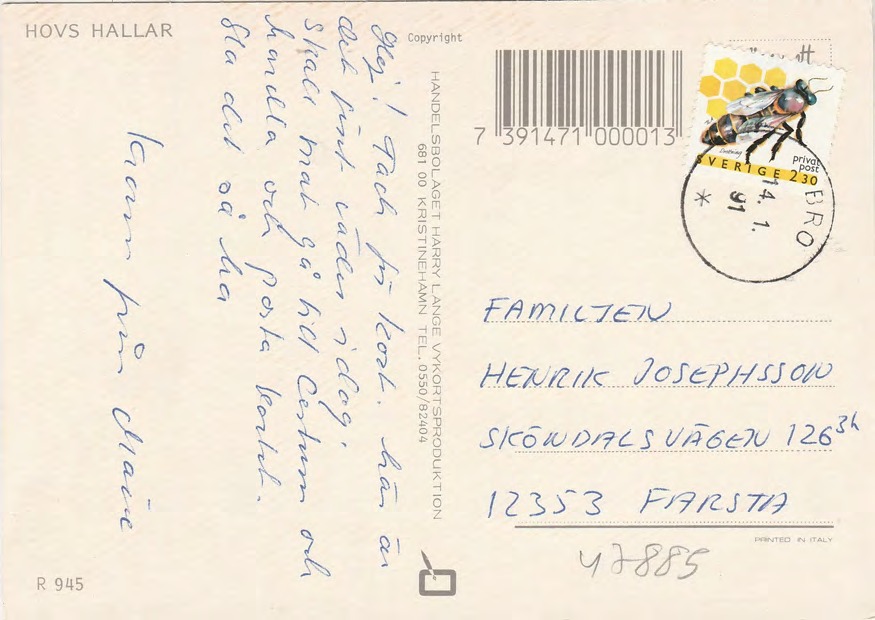 HOVS HALLAR
Copyright
Hej! Tack för kort. här är
det fint väder idag.
Skall mat gå till Centrum och
handla och posta kortet.
Ha det så bra
Kram från
HANDELSBOLAGET HARRY LANGE VYKORTSPRODUKTION
681 00 KRISTINEHAMN TEL. 0550/82404
7 391471 000013
privat
post
SVERIGE 230
BRO
14. 1.
91
*
FAMILJEN
HENRIK JOSEPHSSON
SKÖNDALSVÄGEN 126 3h
12353 FARSTA
PRINTED IN ITALY
47885
R 945